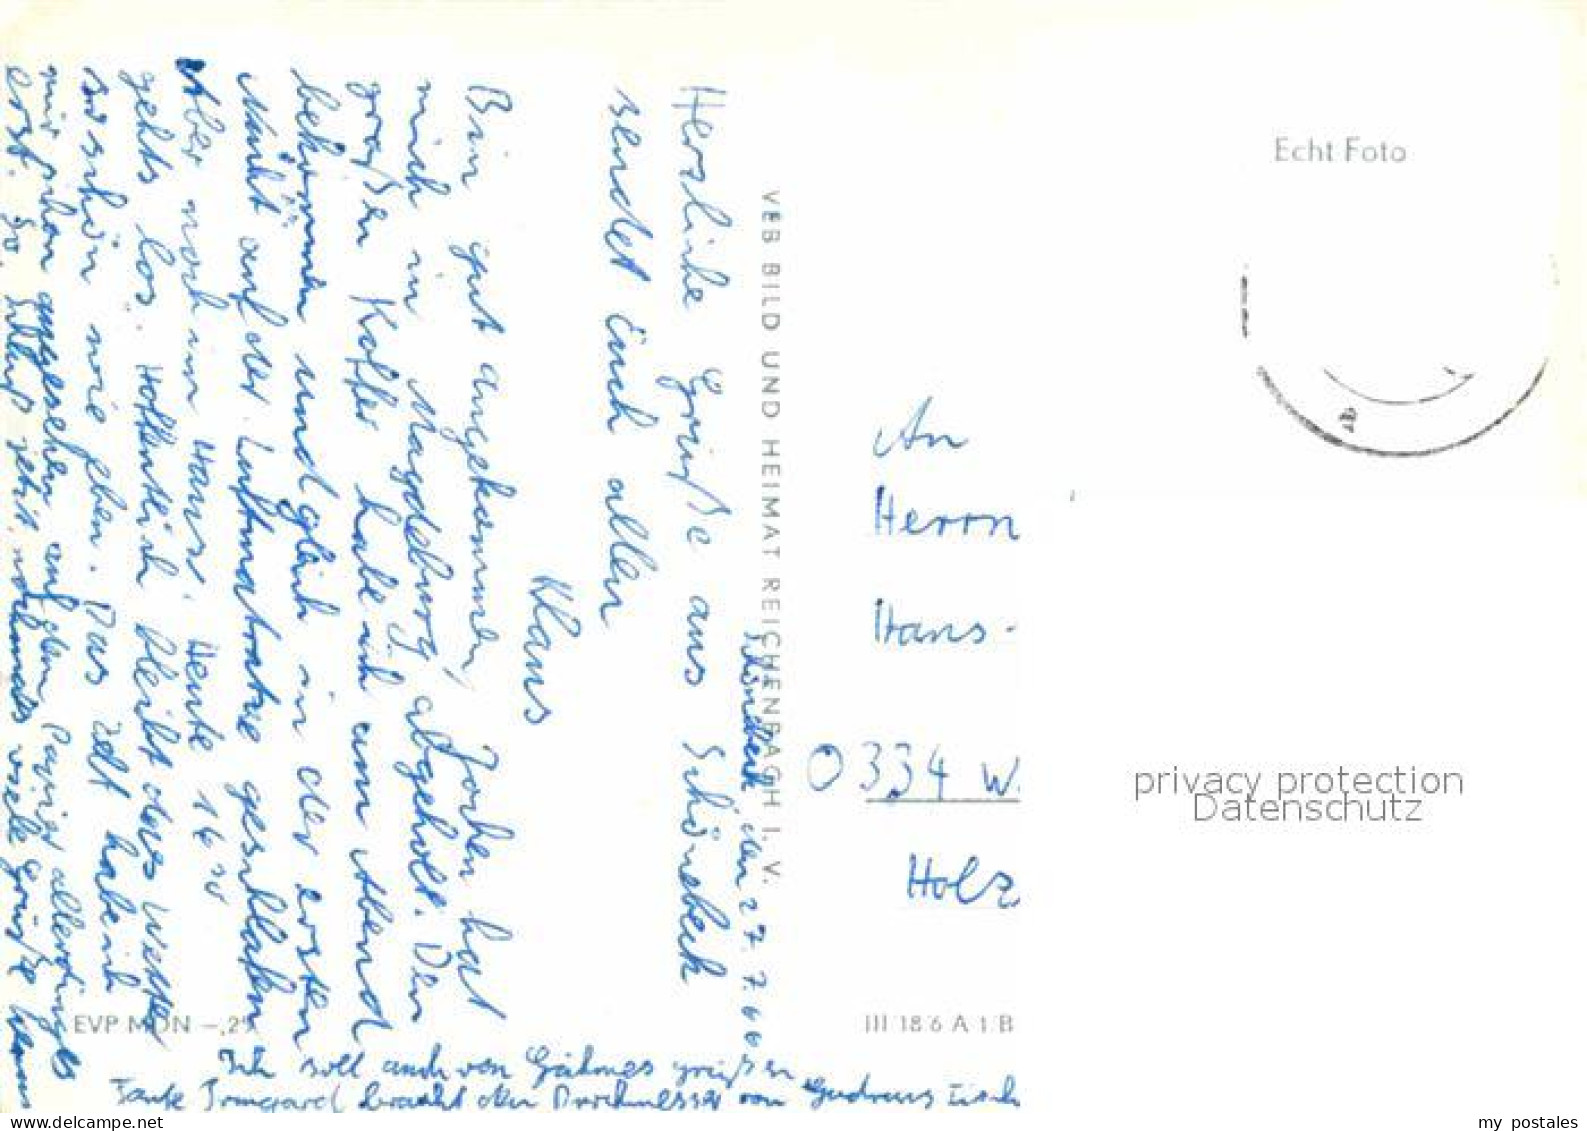 Schönebeck, den 27.7.66
Herzliche Grüße aus Schönebeck
sendet Euch allen
Klaus
Bin gut angekommen, Jochen hat
mich in Magdeburg abgeholt. Den
großen Koffer habe ich am Abend
bekommen und gleich in der ersten
Nacht auf der Luftmatratze geschlafen
Aber noch im Haus. Heute 16 30
gehts los. Hoffentlich bleibt das Wetter
so schön wie eben. Das Zelt habe ich
mir schon angesehen auf dem Papier allerdings
erst. So, Schluß jetzt, nochmals viele Grüße Klaus
Ich soll auch von grüßen
Tante Irmgard braucht den Durchmesser von Gudruns Tisch
VEB BILD UND HEIMAT REICHENBACH I. V.
EVP MDN –,2
III 18 6 A 1 B
Echt Foto
An
Herrn
Hans-
O 334 W.
Holz
privacy protection
Datenschutz
www.delcampe.net
my_postales